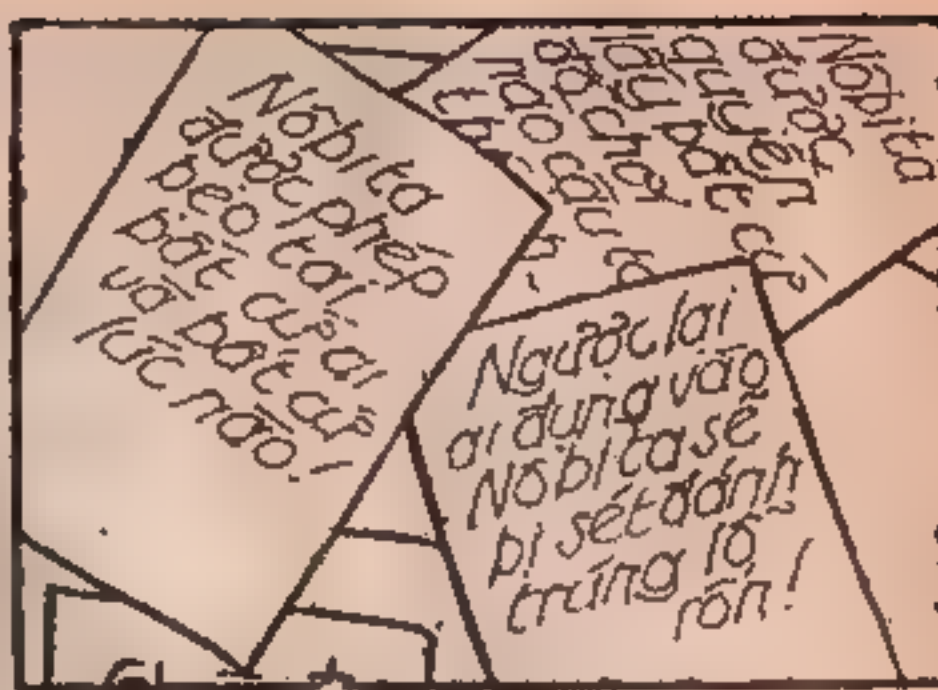 Nôbita
được phép
béo tai
bất cứ ai
và bất cứ
lúc nào!
Nôbita
được
quyền
lấy bất cứ
đồ chơi
nào cậu
Ngược lại
ai đụng vào
Nôbita sẽ
bị sét đánh
trúng lỗ
rốn!